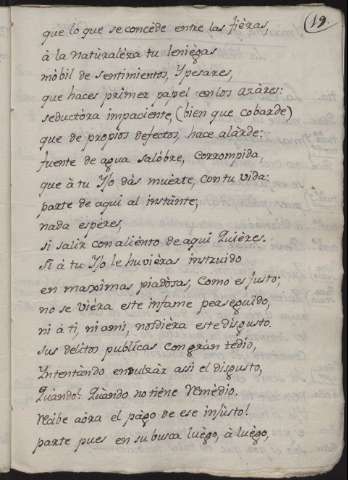 19
que lo que se concède entre las fièras,
à la naturalèza tu le niègas
mòbil de sentimientos, y pesares,
que haces primer papel en los azàres:
seductora impaciente, (bien que cobarde)
que de propios defectos, hace alàrde:
fuente de agua salòbre, corrompida,
que à tu Yjo dàs muèrte, con tu vida:
parte de aqui al instànte,
nada espères,
si salir con aliènto de aqui Quières.
Si à tu Yjo le huvièras instruido
en maxsimas piadòsas, Como es justo,
no se vièra este infame perseguìdo,
ni à ti, ni ami, nos dièra este disgusto.
Sus delitos publicas con gràn tèdio,
Intentàndo endulzàr assi el disgusto,
Quàndo? Quàndo no tiène Remèdio.
Recìbe aòra el pàgo de ese injùsto!
parte pues en su busca luègo, à luègo,